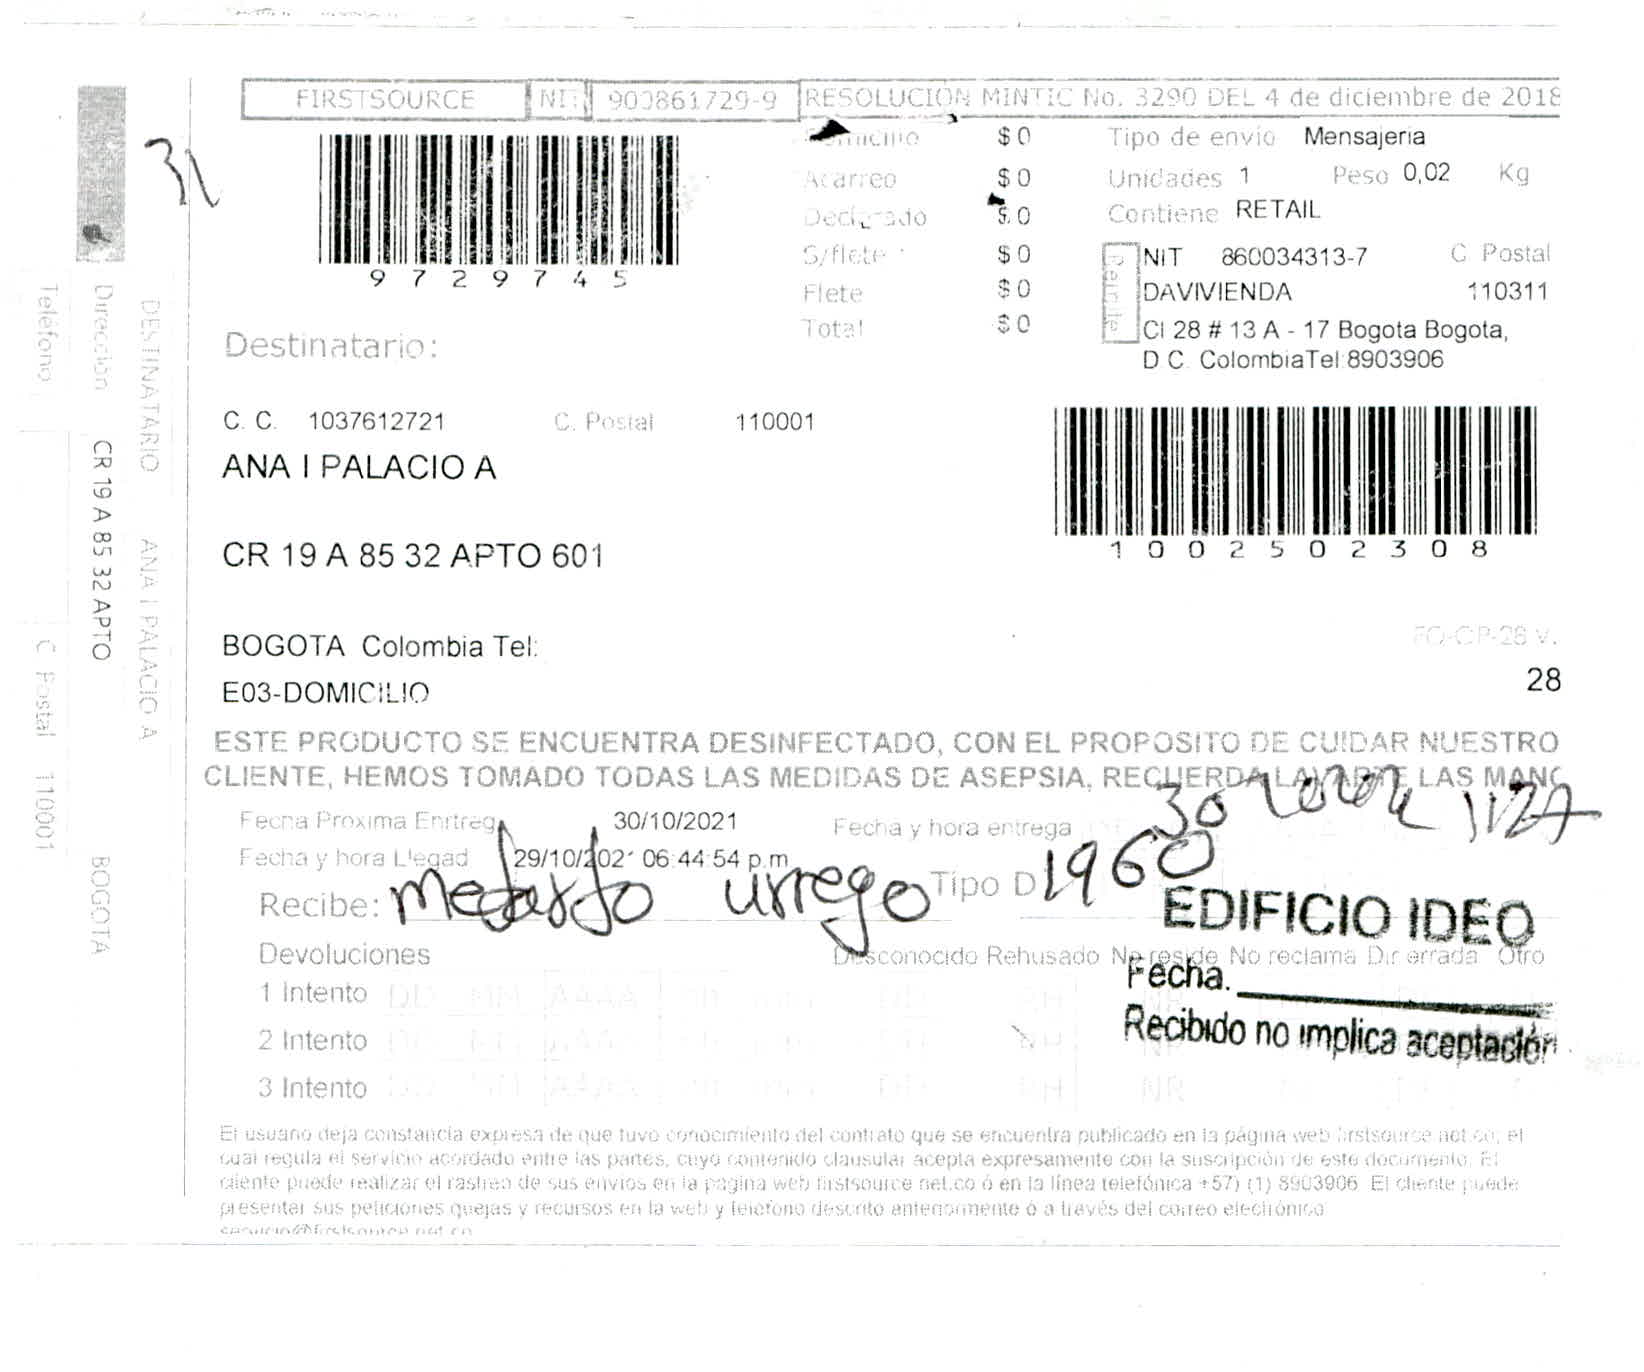 FIRSTSOURCE NIT 900861729-9 RESOLUCION MINTIC No. 3290 DEL 4 de diciembre de 2018
Domicilio $ 0
Acarreo $ 0
Declarado $ 0
S/flete $ 0
Flete $ 0
Total $ 0
Tipo de envio Mensajeria
Unidades 1 Peso 0,02 Kg
Contiene RETAIL
NIT 860034313-7 C Postal
DAVIVIENDA 110311
Cl 28 # 13 A - 17 Bogota Bogota,
D C. ColombiaTel 8903906
9729745
31
Destinatario:
C. C. 1037612721 C. Postal 110001
ANA I PALACIO A
CR 19 A 85 32 APTO 601
1002502308
BOGOTA Colombia Tel:
E03-DOMICILIO
FO-OP-28 v.
28
ESTE PRODUCTO SE ENCUENTRA DESINFECTADO, CON EL PROPOSITO DE CUIDAR NUESTRO
CLIENTE, HEMOS TOMADO TODAS LAS MEDIDAS DE ASEPSIA, RECUERDA LAVARTE LAS MANO
Fecha Proxima Enrtreg 30/10/2021
Fecha y hora entrega 30
Fecha y hora Llegad 29/10/2021 06:44:54 p.m
Recibe: urrego Tipo D 1960
EDIFICIO IDEO
Fecha.
Recibido no implica aceptación
Devoluciones Desconocido Rehusado No reside No reclama Dir errada Otro
1 Intento DD MM AAAA
2 Intento DD MM AAAA RH NR
3 Intento DD MM AAAA RH NR
El usuario deja constancia expresa de que tuvo conocimiento del contrato que se encuentra publicado en la página web firstsource.net.co; el
cual regula el servicio acordado entre las partes, cuyo contenido clausular acepta expresamente con la suscripción de este documento. El
cliente puede realizar el rastreo de sus envios en la pagina web firstsource net.co ó en la línea telefónica +57) (1) 8903906 El cliente puede
presentar sus peticiones quejas y recursos en la web y telefono descrito anteriormente ó a través del correo electrónico
servicio@firstsource.net.co
DESTINATARIO ANA I PALACIO A
Dirección CR 19 A 85 32 APTO BOGOTA
Teléfono C Postal 110001